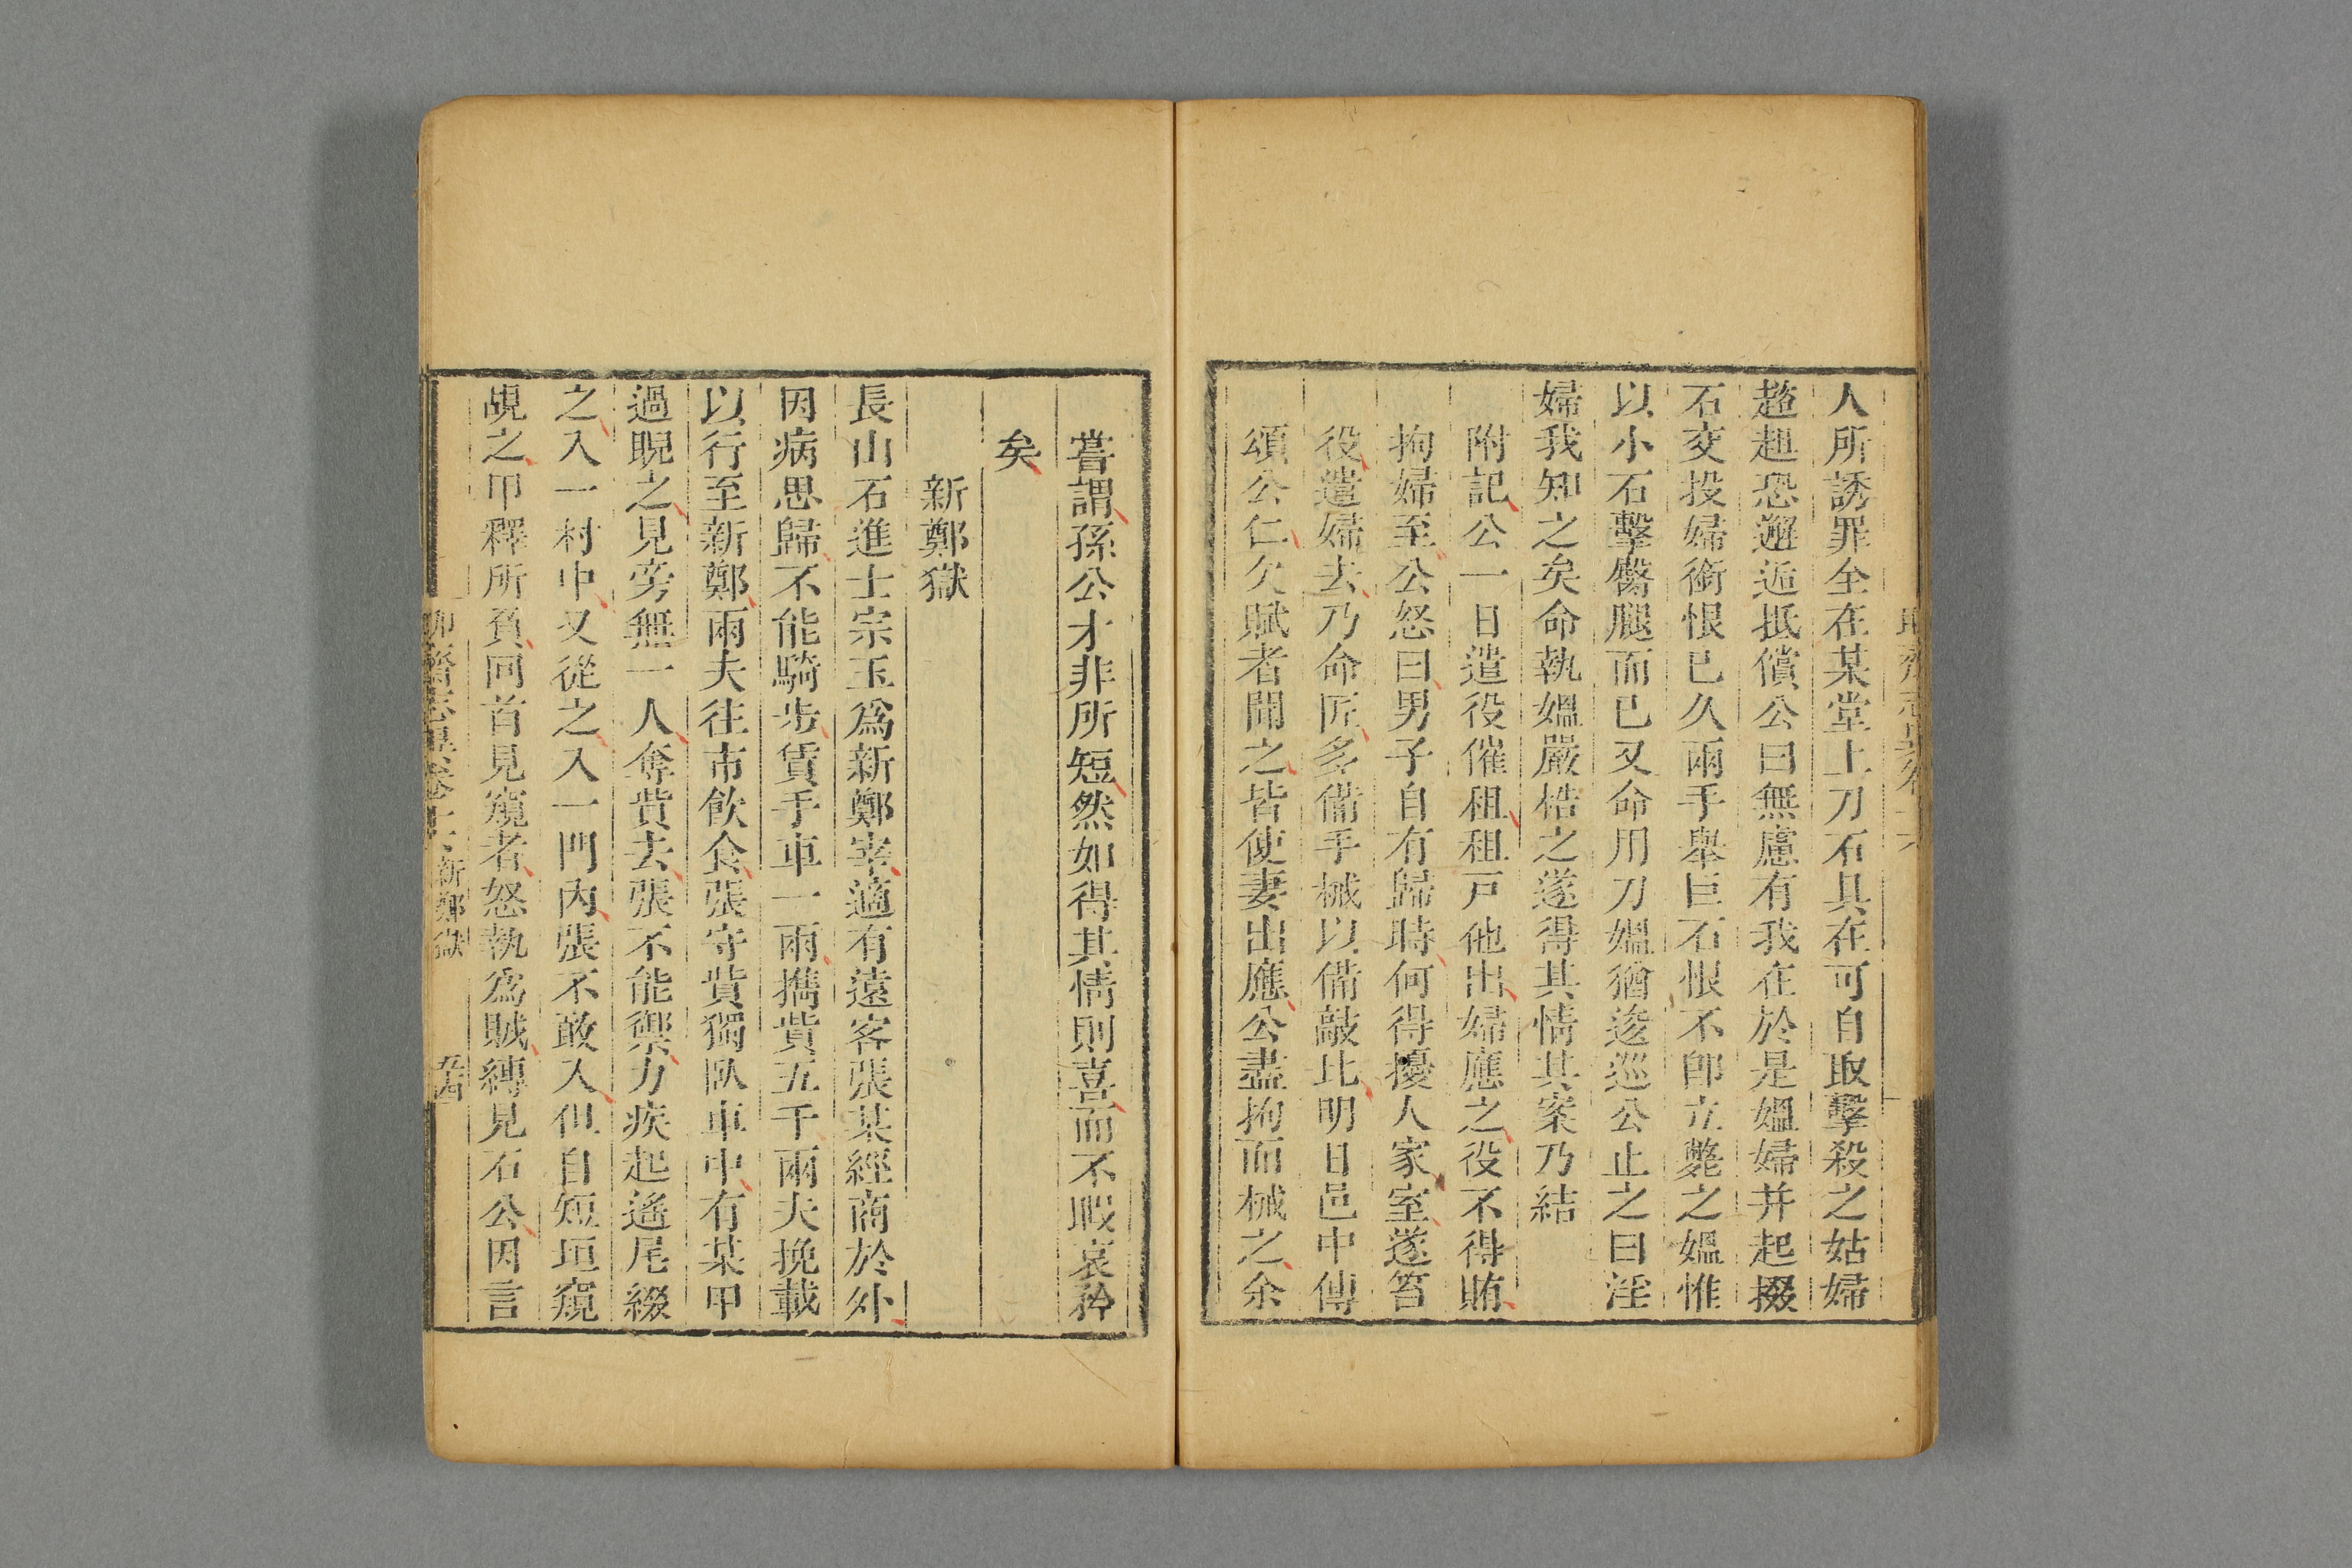 人所誘罪全在某堂上刀石具在可自取擊殺之姑婦
趦趄恐邂逅抵償公曰無慮有我在於是媼婦并起掇
石交投婦銜恨已久兩手舉巨石恨不即立斃之媼惟
以小石擊臀腿而已又命用刀媼猶逡巡公止之曰淫
婦我知之矣命執媼嚴梏之遂得其情其案乃結
附記公一日遣役催租租戸他出婦應之役不得賄
拘婦至公怒曰男子自有歸時何得擾人家室遂笞
役遣婦去乃命匠多備手械以備敲比明日邑中傳
頌公仁欠賦者聞之皆使妻出應公盡拘而械之余
嘗謂孫公才非所短然如得其情則喜而不暇哀矜
矣
新鄭獄
長山石進士宗玉爲新鄭宰適有遠客張某經商於外
因病思歸不能騎步賃手車一兩攜貲五千兩夫挽載
以行至新鄭兩夫往市飲食張守貲獨臥車中有某甲
過睨之見旁無一人奪貲去張不能禦力疾起遙尾綴
之入一村中又從之入一門內張不敢入但自短垣窺
覘之甲釋所負回首見窺者怒執爲賊縛見石公因言
聊齋志異卷十六 新鄭獄 五四